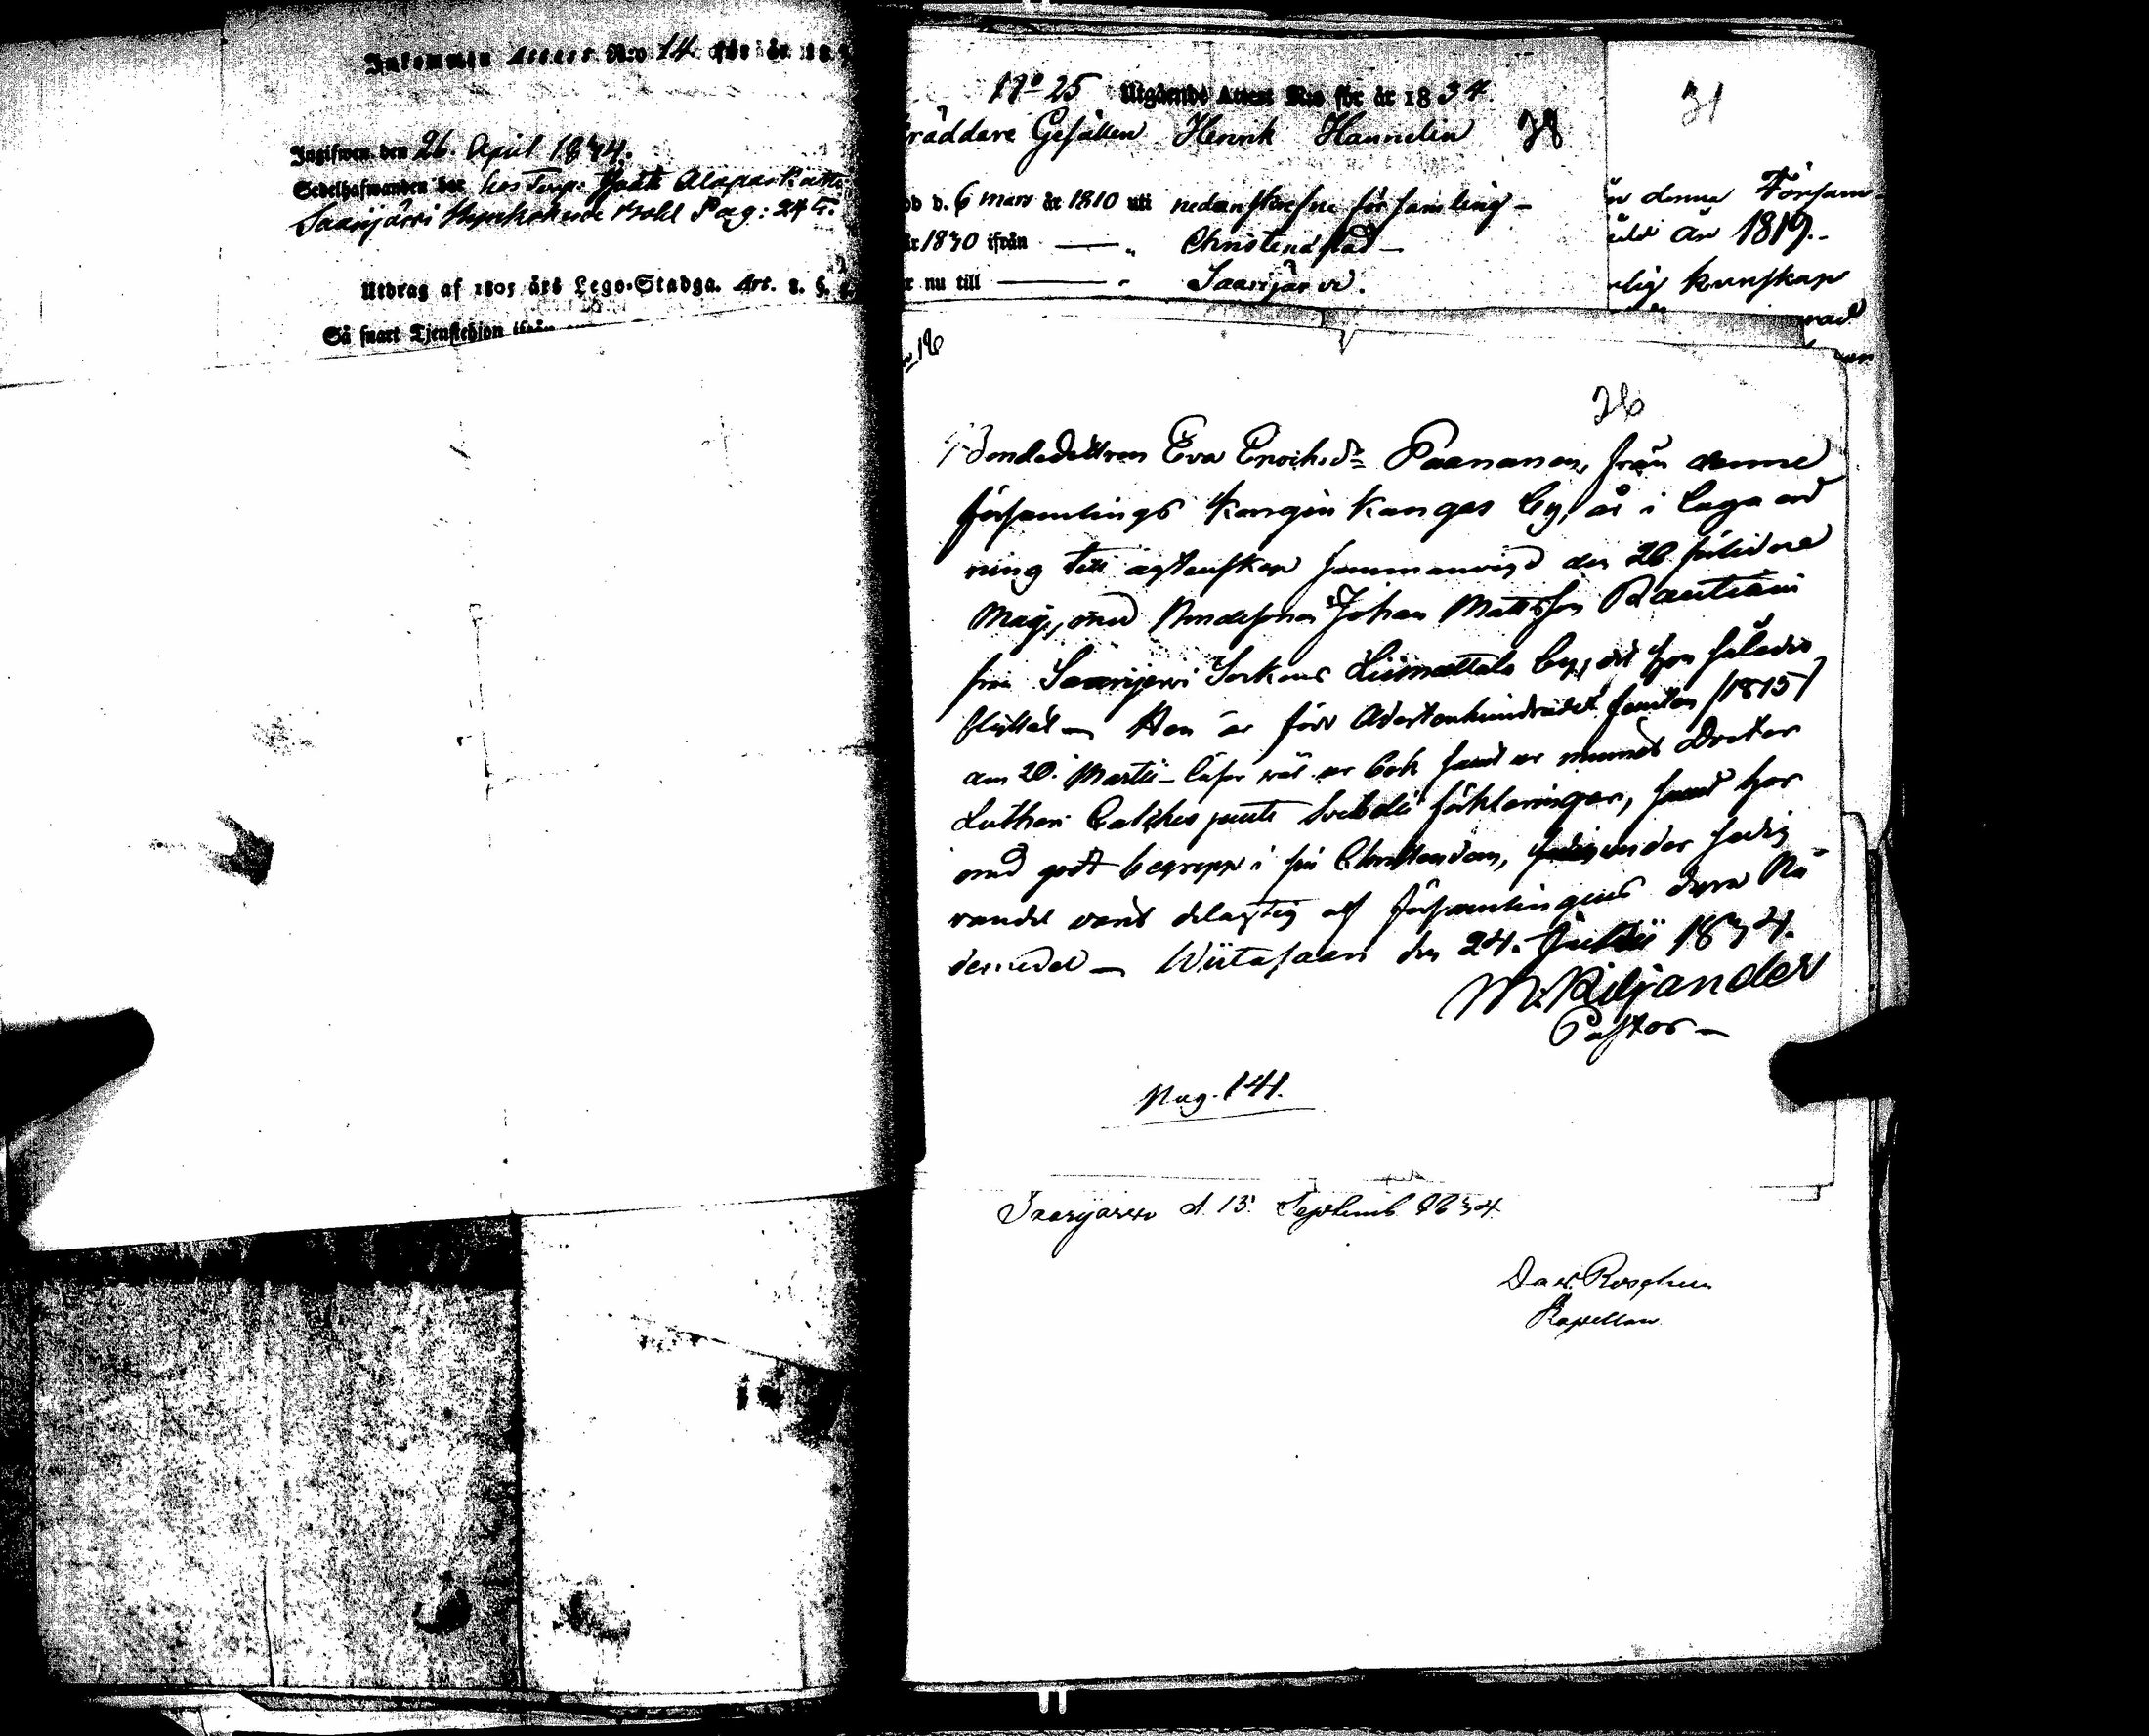 Inkommen Attest N:o 14 för år 18
Ingifwen den 26. April 1834.
Sedelhafwanden bor hos Torp:
Saarijärvi Pag: 245.
Utdrag af 1805 års Lego-Stadga. Art. 8. §.
Så snart Tjenstehjon ifrån
No 25 Utgående Attest N:o för år 1834.
räddare Gesällen Henrik Hannelin 38
dd d. 6 mars år 1810 uti nedanskrefne församling -
år 1830 ifrån — „ Christinestad —
r nu till — „ Saarijärvi.
31
denna Församl-
år 1819.-
lig kunskap
26
Bondedottren Eva Enochsdr Paananen, från denne
församlings Kangin Kangas by, är i laga ord
ning till ägtenskap sammanvigd den 26 sistledne
Maji, med Bondesonen Johan Mattsson Rautiain
från Saarijervi Sockens Liimattala by, dit hon således
flyttat — Hon är född Adertonhundradet femton /1815/
den 20. Martii - läser väl ur bok samt ur minnet Doctor
Lutheri Catches jemte Svebelii förklaringar, samt har
med godt begrepp i sin Christendom, under hederlig
vandel varit delagtig af församlingens dyra Nå
demedel — Wiitasaari den 24. Julii 1834.
M. Kiljander
Pastor —
Pag. 141.
Saarijärvi d. 13. Septemb. 1834.
Dav. Roschier
Kapellan.